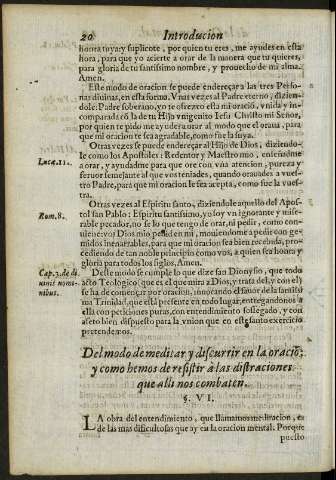 20 Introducion
honra tuya y suplicote, por quien tu eres, me ayudes en esta
hora, para que yo acierte a orar de la manera que tu quieres,
para gloria de tu santissimo nombre, y prouecho de mi alma.
Amen.
Este modo de oracion se puede endereçar a las tres Perso-
nas diuinas, en esta forma. Vnas vezes al Padre eterno, dizien-
dole: Padre soberano, yo te ofrezco esta mi oraciō, vnida y in-
corporada cō la de tu Hijo vnigenito Iesu Christo mi Señor,
por quien te pido me ayudes a orar al modo que el oraua, para
que mi oracion te sea agradable, como fue la suya.
Otras vezes se puede endereçar al Hijo de Dios, diziendo-
Lucæ.11. le como los Apostoles: Redentor y Maestro mio, enseñadme
a orar, y ayudadme para que ore con vna atencion, pureza y
feruor semejante al que vos teniades, quando orauades a vues-
tro Padre, para que mi oracion le sea acepta, como fue la vues-
tra.
Otras vezes al Espiritu santo, diziendole aquello del Apos-
Rom.8. tol san Pablo: Espiritu santissimo, yo soy vn ignorante y mise-
rable pecador, no se lo que tengo de orar, ni pedir, como con-
uiene: vos Dios mio pedid en mi, mouiendome a pedir con ge-
midos inenarrables, para que mi oracion sea bien recebida, pro-
cediendo de tan noble principio como vos, a quien sea honra y
gloria para todos los siglos, Amen.
Cap.3. de di-
uinis nomi-
nibus.
Deste modo se cumple lo que dize san Dionysio, que todo
acto Teologico (que es el que mira a Dios, y trata del, y con el)
se ha de començar por oracion, inuocando el fauor de la santissi
ma Trinidad, que está presente en todo lugar, entregandonos a
ella con peticiones puras, con entendimiento sossegado, y con
afeto bien dispuesto para la vnion que en este santo exercicio
pretendemos.
Del modo de meditar y discurrir en la oraciō;
y como hemos de resistir à las distraciones
que alli nos combaten.
§. VI.
LA obra del entendimiento, que llamamos meditacion, es
de las mas dificultosas que ay en la oracion mental. Porque
puesto